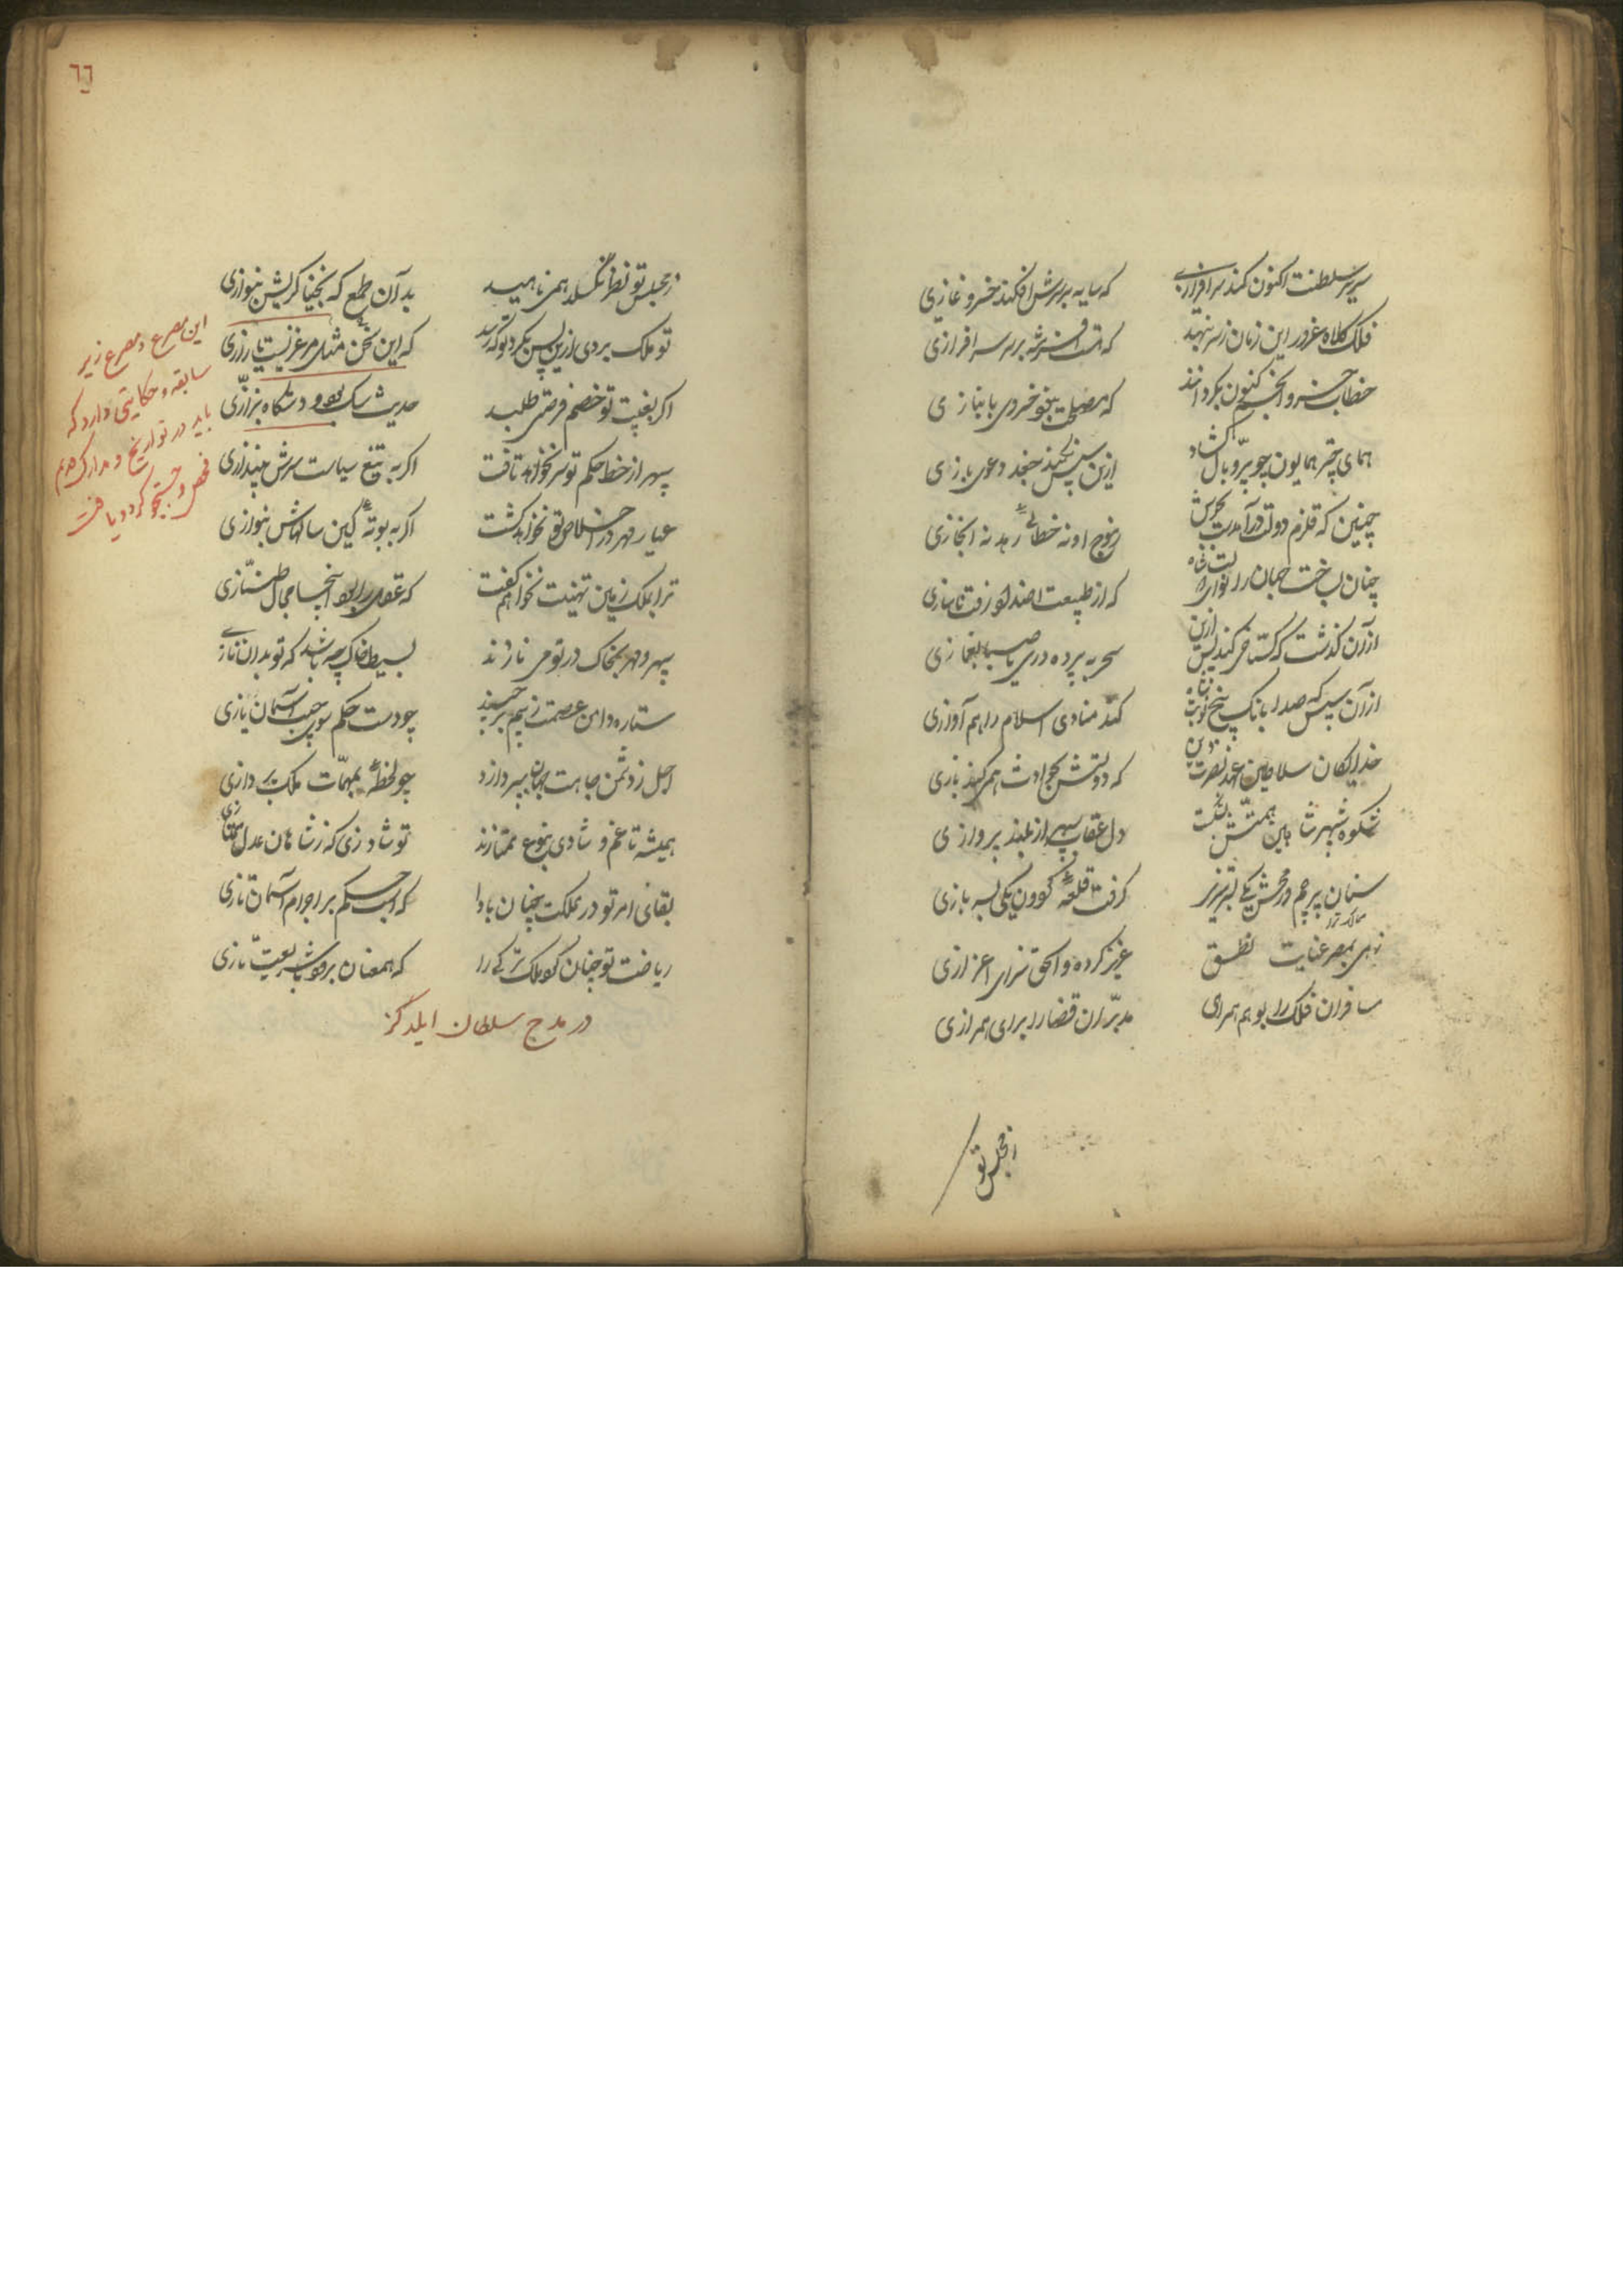 سریر سلطنت اکنون کند سرافرازی
که سایه بر سرش افکند خسرو غازی
فلک کلاه غرور این زمان ز سر بنهد
که بر سر سرافرازی
خطاب خسرو انجم کنون بگردانند
که مصلحت نبود خسروی بانبازی
همای چتر همایون چو پر و بال گشاد
ازین سپس نکند جغد دعوی بازی
چنین که قلزم دولت در آمدست بجوش
ز موج او نه خطائی رهد نه ابخازی
چنان بساخت جهان را نوای
که از طبیعت اضداد رفت ناسازی
از آن گذشت که گستاخی کند پس ازین
سحر به پرده دری یا صبا بغمازی
از آن سپس که صدا بانگ پنج نوبت شاه
کند منادی اسلام را هم آوازی
خدایگان سلاطین عهد نصرت دین
که دولتش بحوادث همی کند بازی
شکوه شهپر شاهین همتش بشکست
دل عقاب سپهر از بلند پروازی
سنان پرچم
گرفت قلعه گردون یکی بسربازی
زهی بمصر عنایت
عزیز کرده و الحق سزای اعزازی
مسافران فلک را بوهم همراهی
مدبران قضا را برای همرازی
ز مجلس تو
٦٦
ز مجلس تو نظر نگسلد همی ناهید
بدان طمع که بخنیاگریش بنوازی
تو ملک بردی ازین پس بگرد تو که رسد
که این سخن مثل مرغزیست با رازی
اگر بغیبت تو خصم فرصتی طلبد
حدیث سگ بود و دستگاه بزازی
سپهر از خط حکم تو سر نخواهد تافت
اگر به تیغ سیاست سرش بیندازی
عیار مهر در اخلاص تو نخواهد گشت
اگر به بوته کین سالهاش بگدازی
ترا بملک زمین تهنیت نخواهم گفت
که عقل را بود آنجا مجال طنازی
سپهر و مهر بخاک در تو می نازند
بسیط خاک چه باشد که تو بدان نازی
ستاره دامن عصمت ز بیم برچیند
چو دست حکم سوی جیب آسمان یازی
اجل ز دشمن جاهت جهان بپردازد
چو لحظه بمهمات ملک پردازی
همیشه تا غم و شادی بنوع ممتازند
تو شاد زی که ز شاهان بعدل ممتازی
بقای امر تو در مملکت چنان بادا
که اسب حکم بر اجرام آسمان تازی
ریاضت تو چنان کو ملک ترکی را
که همعنان برود با شریعت تازی
در مدح سلطان ایلدگز
این مصرع و مصرع زیر
سابقه و حکایتی دارد که
باید در تواریخ و مدارک قدیم
فحص و جستجو کرد و یافت